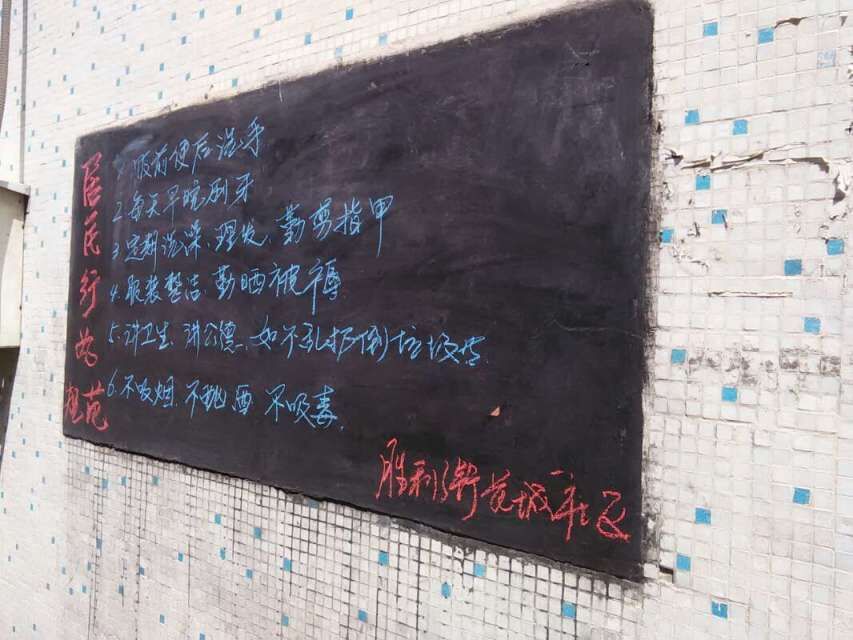 居民行为规范
1. 饭前便后洗手
2. 每天早晚刷牙
3. 定期洗澡、理发、勤剪指甲
4. 服装整洁 勤晒被褥
5. 讲卫生 讲公德 如不乱扔倒垃圾等
6. 不吸烟、不酗酒 不吸毒
胜利 花城社区